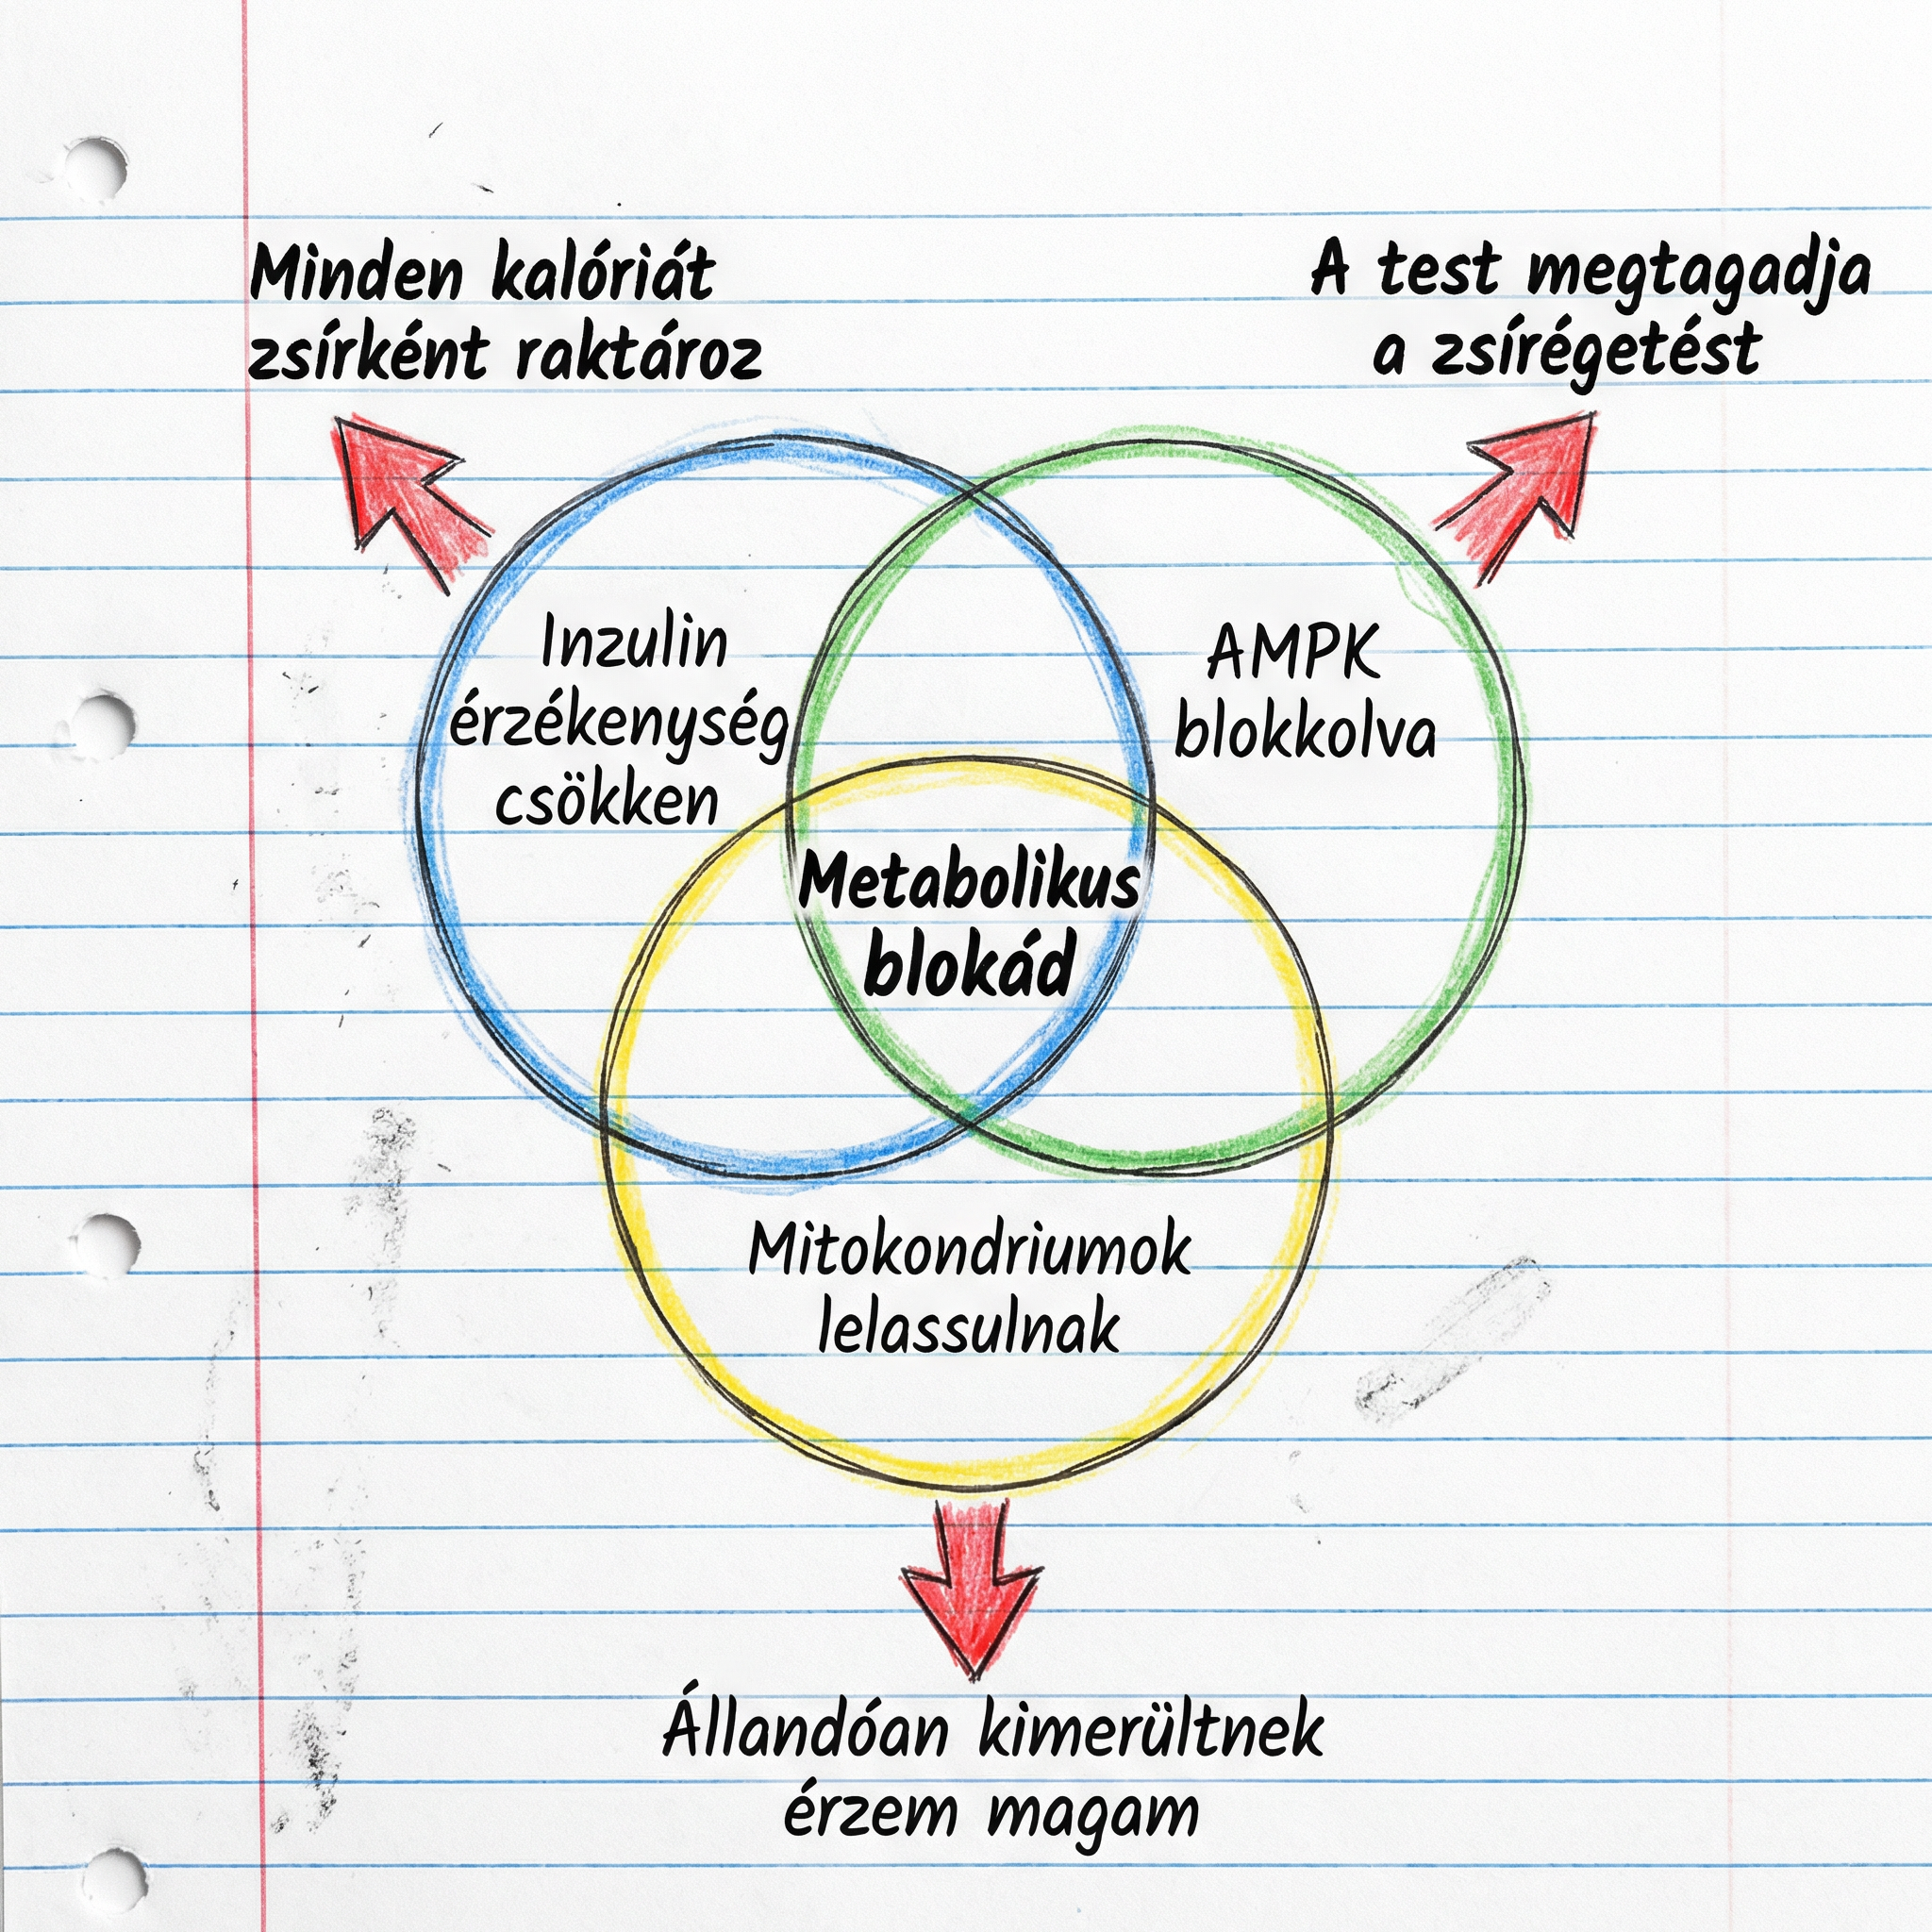 Minden kalóriát
zsírként raktároz
A test megtagadja
a zsírégetést
Inzulin
érzékenység
csökken
AMPK
blokkolva
Metabolikus
blokád
Mitokondriumok
lelassulnak
Állandóan kimerültnek
érzem magam